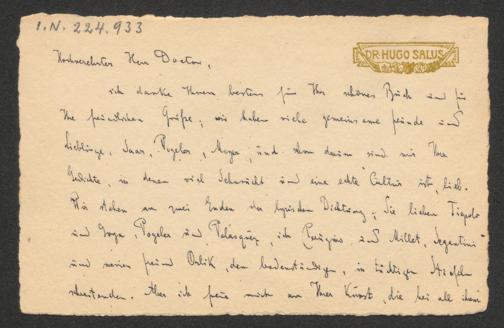 I.N. 224.933
DR. HUGO SALUS
Hochverehrter Herr Doctor,
ich danke Ihnen bestens für Ihr schönes Buch und für
Ihre freundlichen Grüße; wir haben viele gemeinsame Freunde und
Lieblinge, Saar, Vogeler, und schon darum sind mir Ihre
Gedichte, in denen viel Sehnsucht und eine echte Cultur ist, lieb.
Wir stehen an zwei Enden der lyrischen Dichtung, Sie lieben Tiepolo
und Goya, Vogeler und Velasquez, ich Perugino und Millet, Segantini
und meinen Freund Orlik, den bodenständigen, in tüchtigen Stiefeln
Aber ich freue mich an Ihrer Kunst, die bei all ihrer